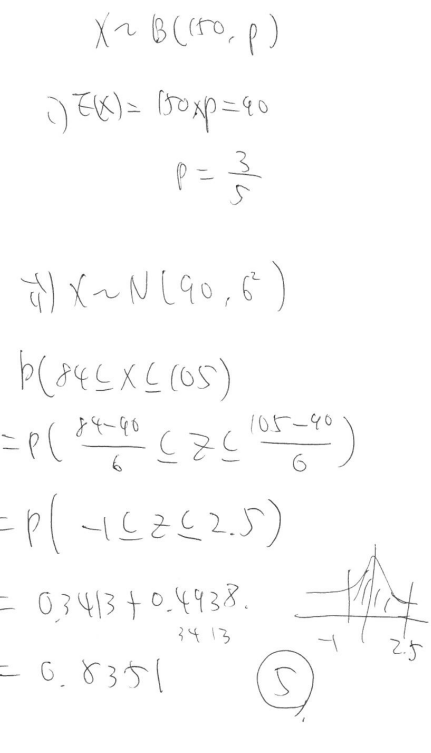 X ~ B(150, p)
i) E(X) = 150×p = 90
p = 3/5
ii) X ~ N(90, 6²)
P(84 ≤ X ≤ 105)
= P( (84-90)/6 ≤ Z ≤ (105-90)/6 )
= P( -1 ≤ Z ≤ 2.5)
= 0.3413 + 0.4938.
3413
-1 2.5
= 0.8351 ⑤